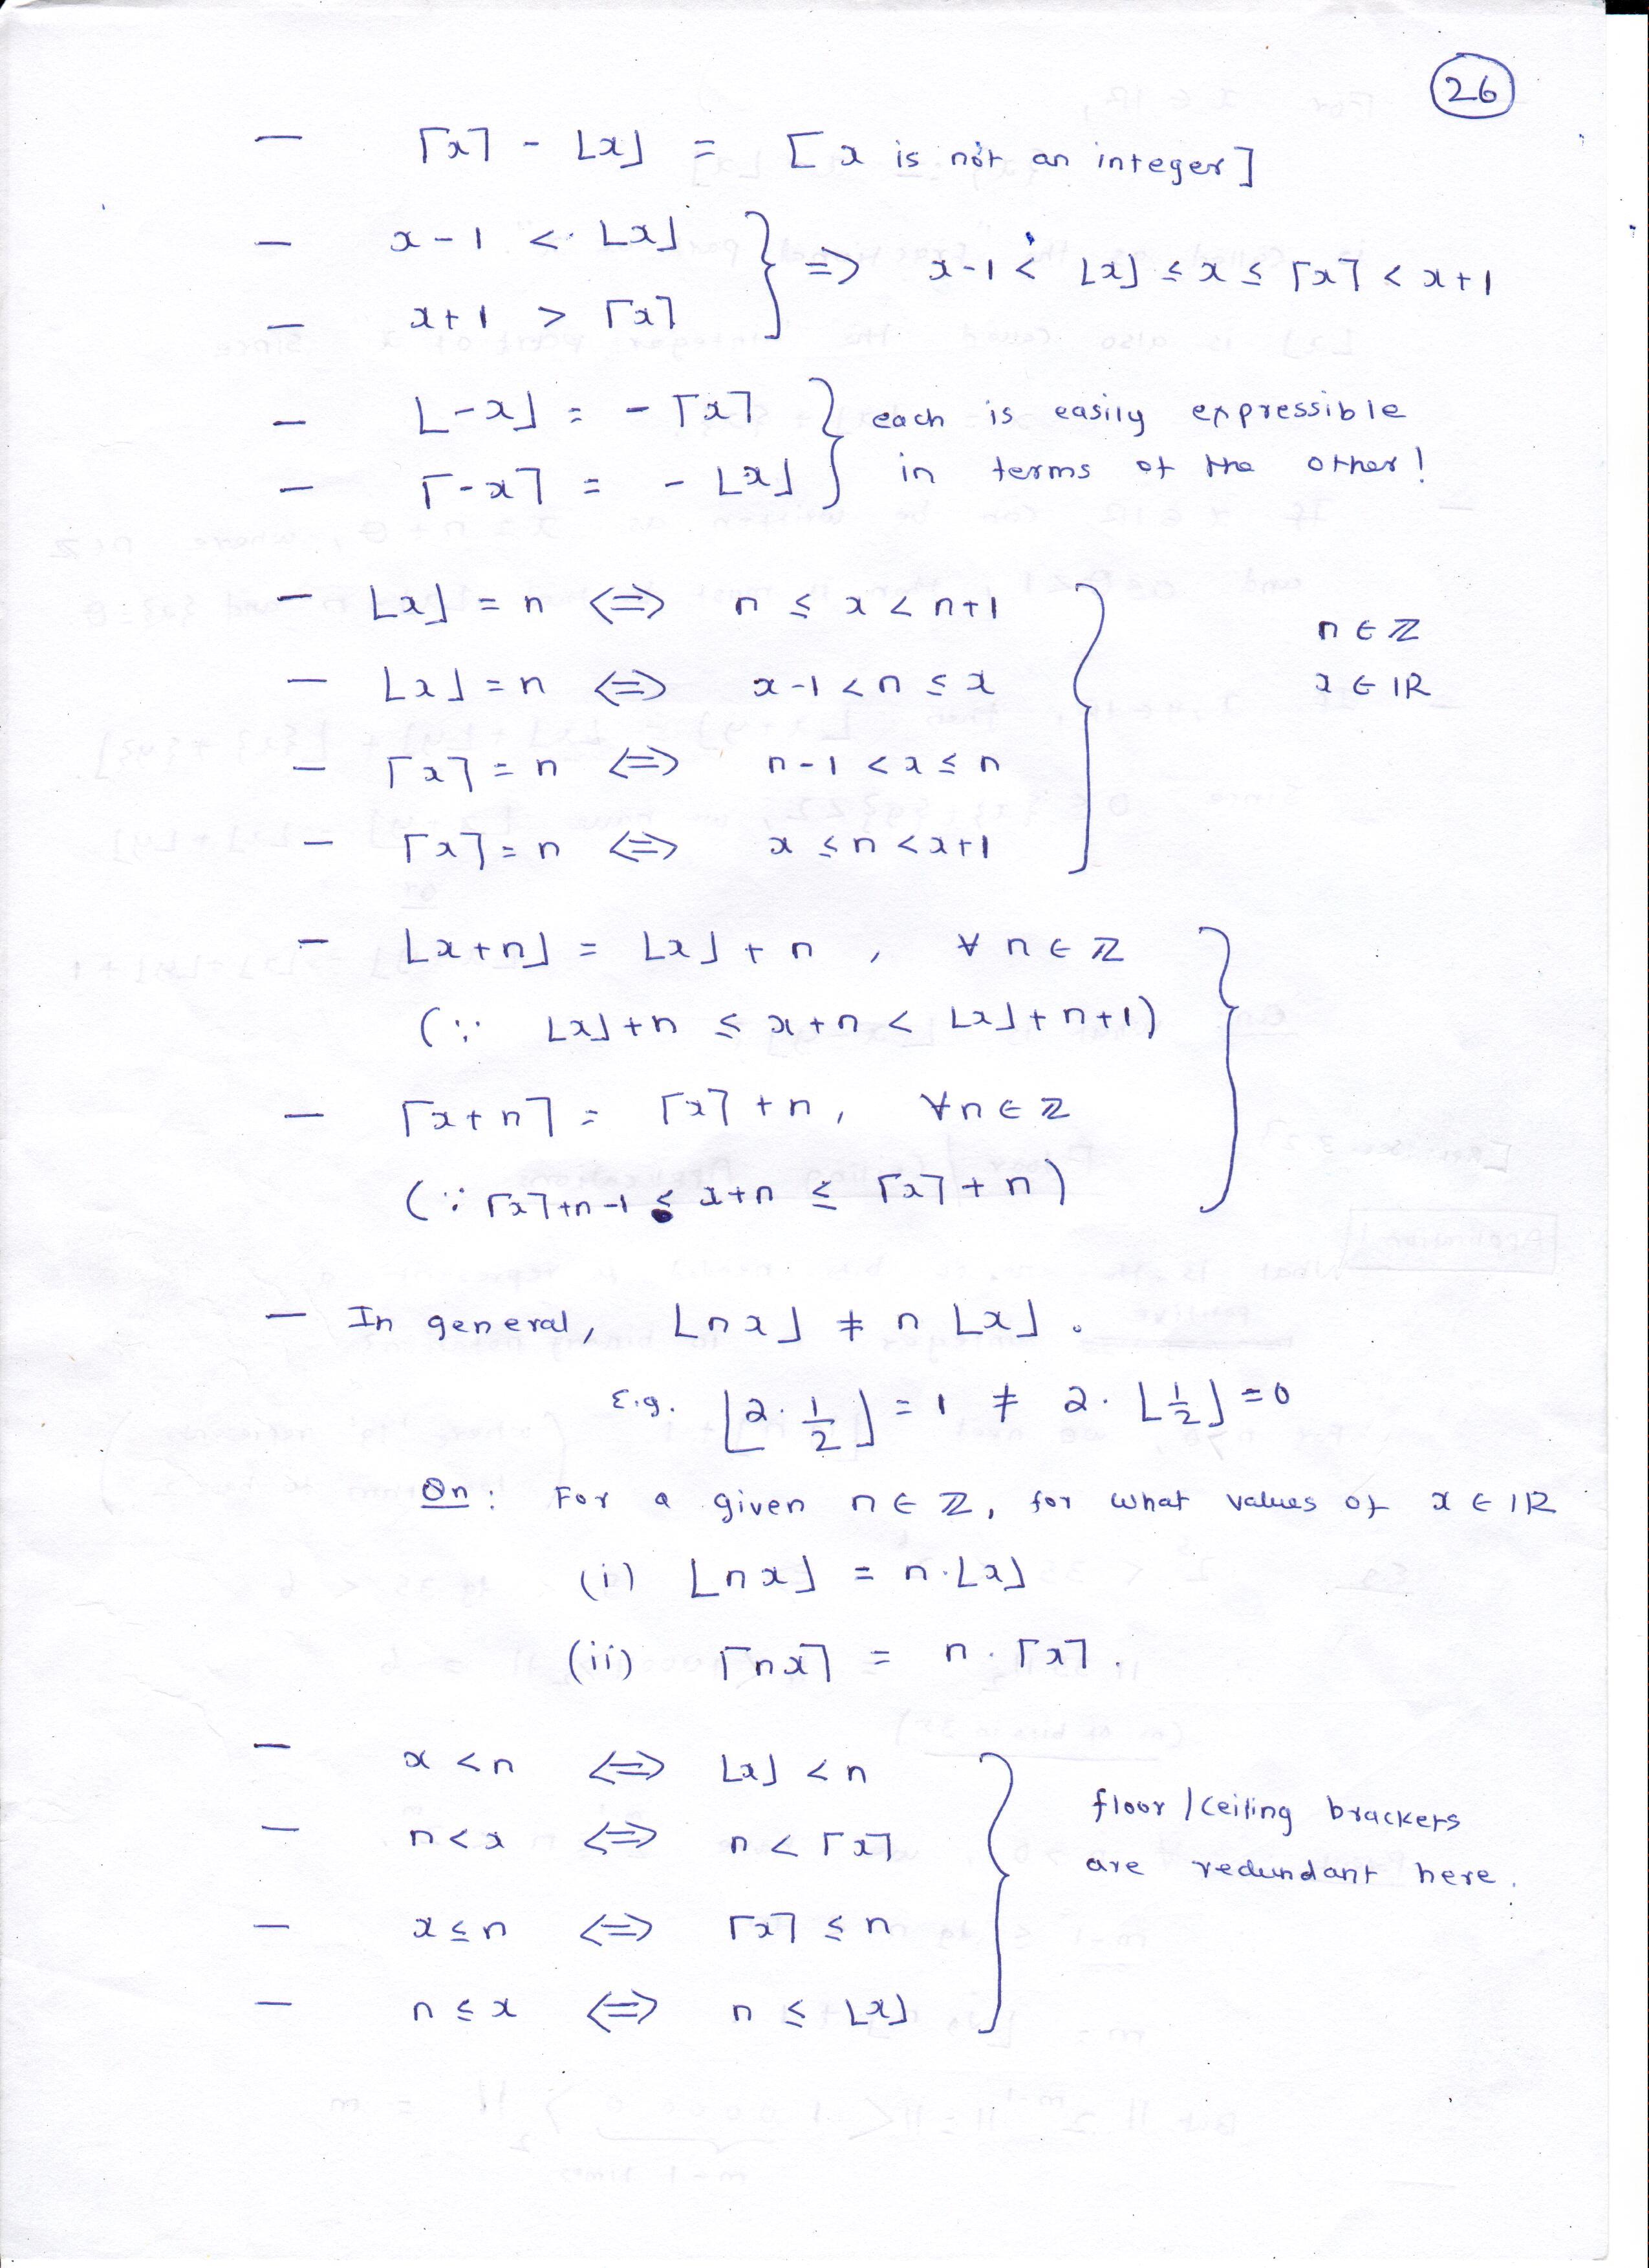 26
— ⌈x⌉ - ⌊x⌋ = [x is not an integer]
— x-1 < ⌊x⌋
— x+1 > ⌈x⌉
} => x-1 < ⌊x⌋ ≤ x ≤ ⌈x⌉ < x+1
— ⌊-x⌋ = -⌈x⌉ } each is easily expressible
— ⌈-x⌉ = -⌊x⌋ in terms of the other!
— ⌊x⌋ = n <=> n ≤ x < n+1
— ⌊x⌋ = n <=> x-1 < n ≤ x
— ⌈x⌉ = n <=> n-1 < x ≤ n
— ⌈x⌉ = n <=> x ≤ n < x+1
} n ∈ ℤ
x ∈ ℝ
— ⌊x+n⌋ = ⌊x⌋ + n , ∀ n ∈ ℤ
(∵ ⌊x⌋+n ≤ x+n < ⌊x⌋+n+1)
— ⌈x+n⌉ = ⌈x⌉ + n, ∀ n ∈ ℤ
(∵ ⌈x⌉+n-1 ≤ x+n ≤ ⌈x⌉+n)
— In general, ⌊nx⌋ ≠ n⌊x⌋.
E.g. ⌊2·1/2⌋ = 1 ≠ 2·⌊1/2⌋ = 0
Qn: For a given n ∈ ℤ, for what values of x ∈ ℝ
(i) ⌊nx⌋ = n·⌊x⌋
(ii) ⌈nx⌉ = n·⌈x⌉.
— x < n <=> ⌊x⌋ < n
— n < x <=> n < ⌈x⌉
— x ≤ n <=> ⌈x⌉ ≤ n
— n ≤ x <=> n ≤ ⌊x⌋
} floor/ceiling brackers
are redundant here.